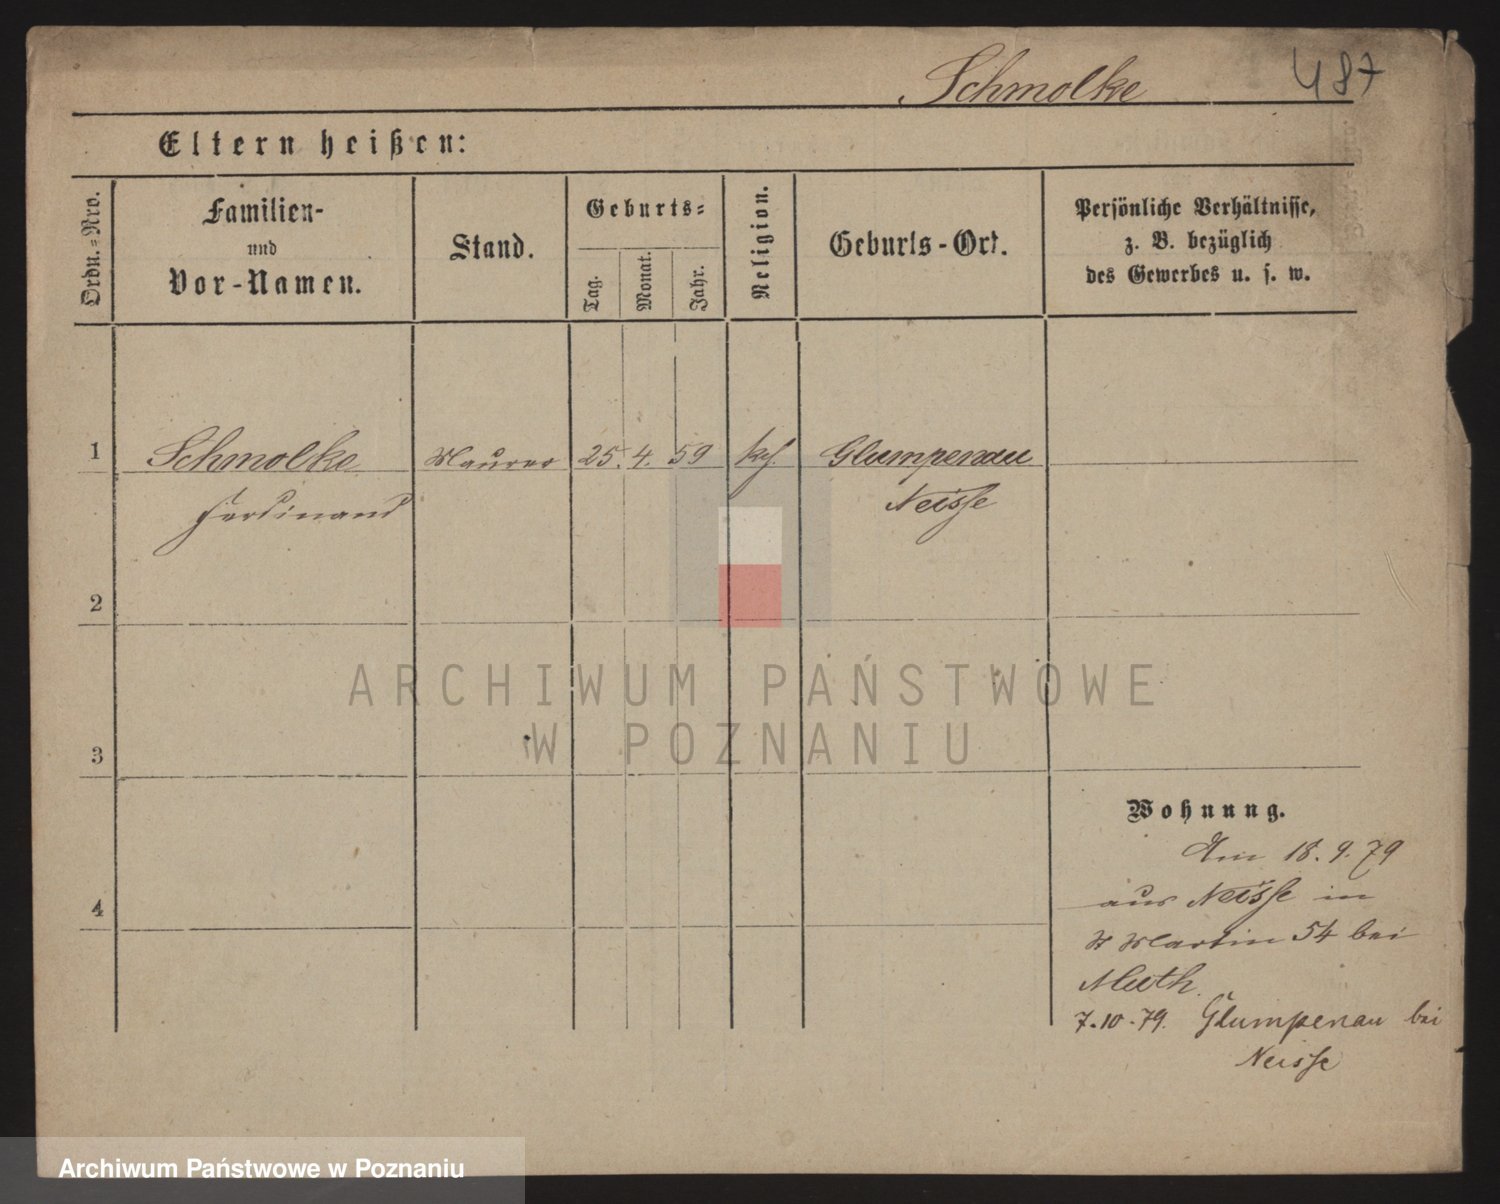 Schmolke 487
Eltern heißen:
Ordn.=Nro.
Familien-
und
Vor-Namen.
Stand.
Geburts=
Tag.
Monat.
Jahr.
Religion.
Geburts-Ort.
Persönliche Verhältnisse,
z. B. bezüglich
des Gewerbes u. s. w.
1 Schmolke Maurer 25. 4. 59 kth. Glumpenau
Ferdinand Neisse
2
3
4
ARCHIWUM PAŃSTWOWE
W POZNANIU
Wohnung.
Am 18. 9. 79
aus Neisse in
St Martin 54 bei
Muth.
7.10.79. Glumpenau bei
Neisse
Archiwum Państwowe w Poznaniu